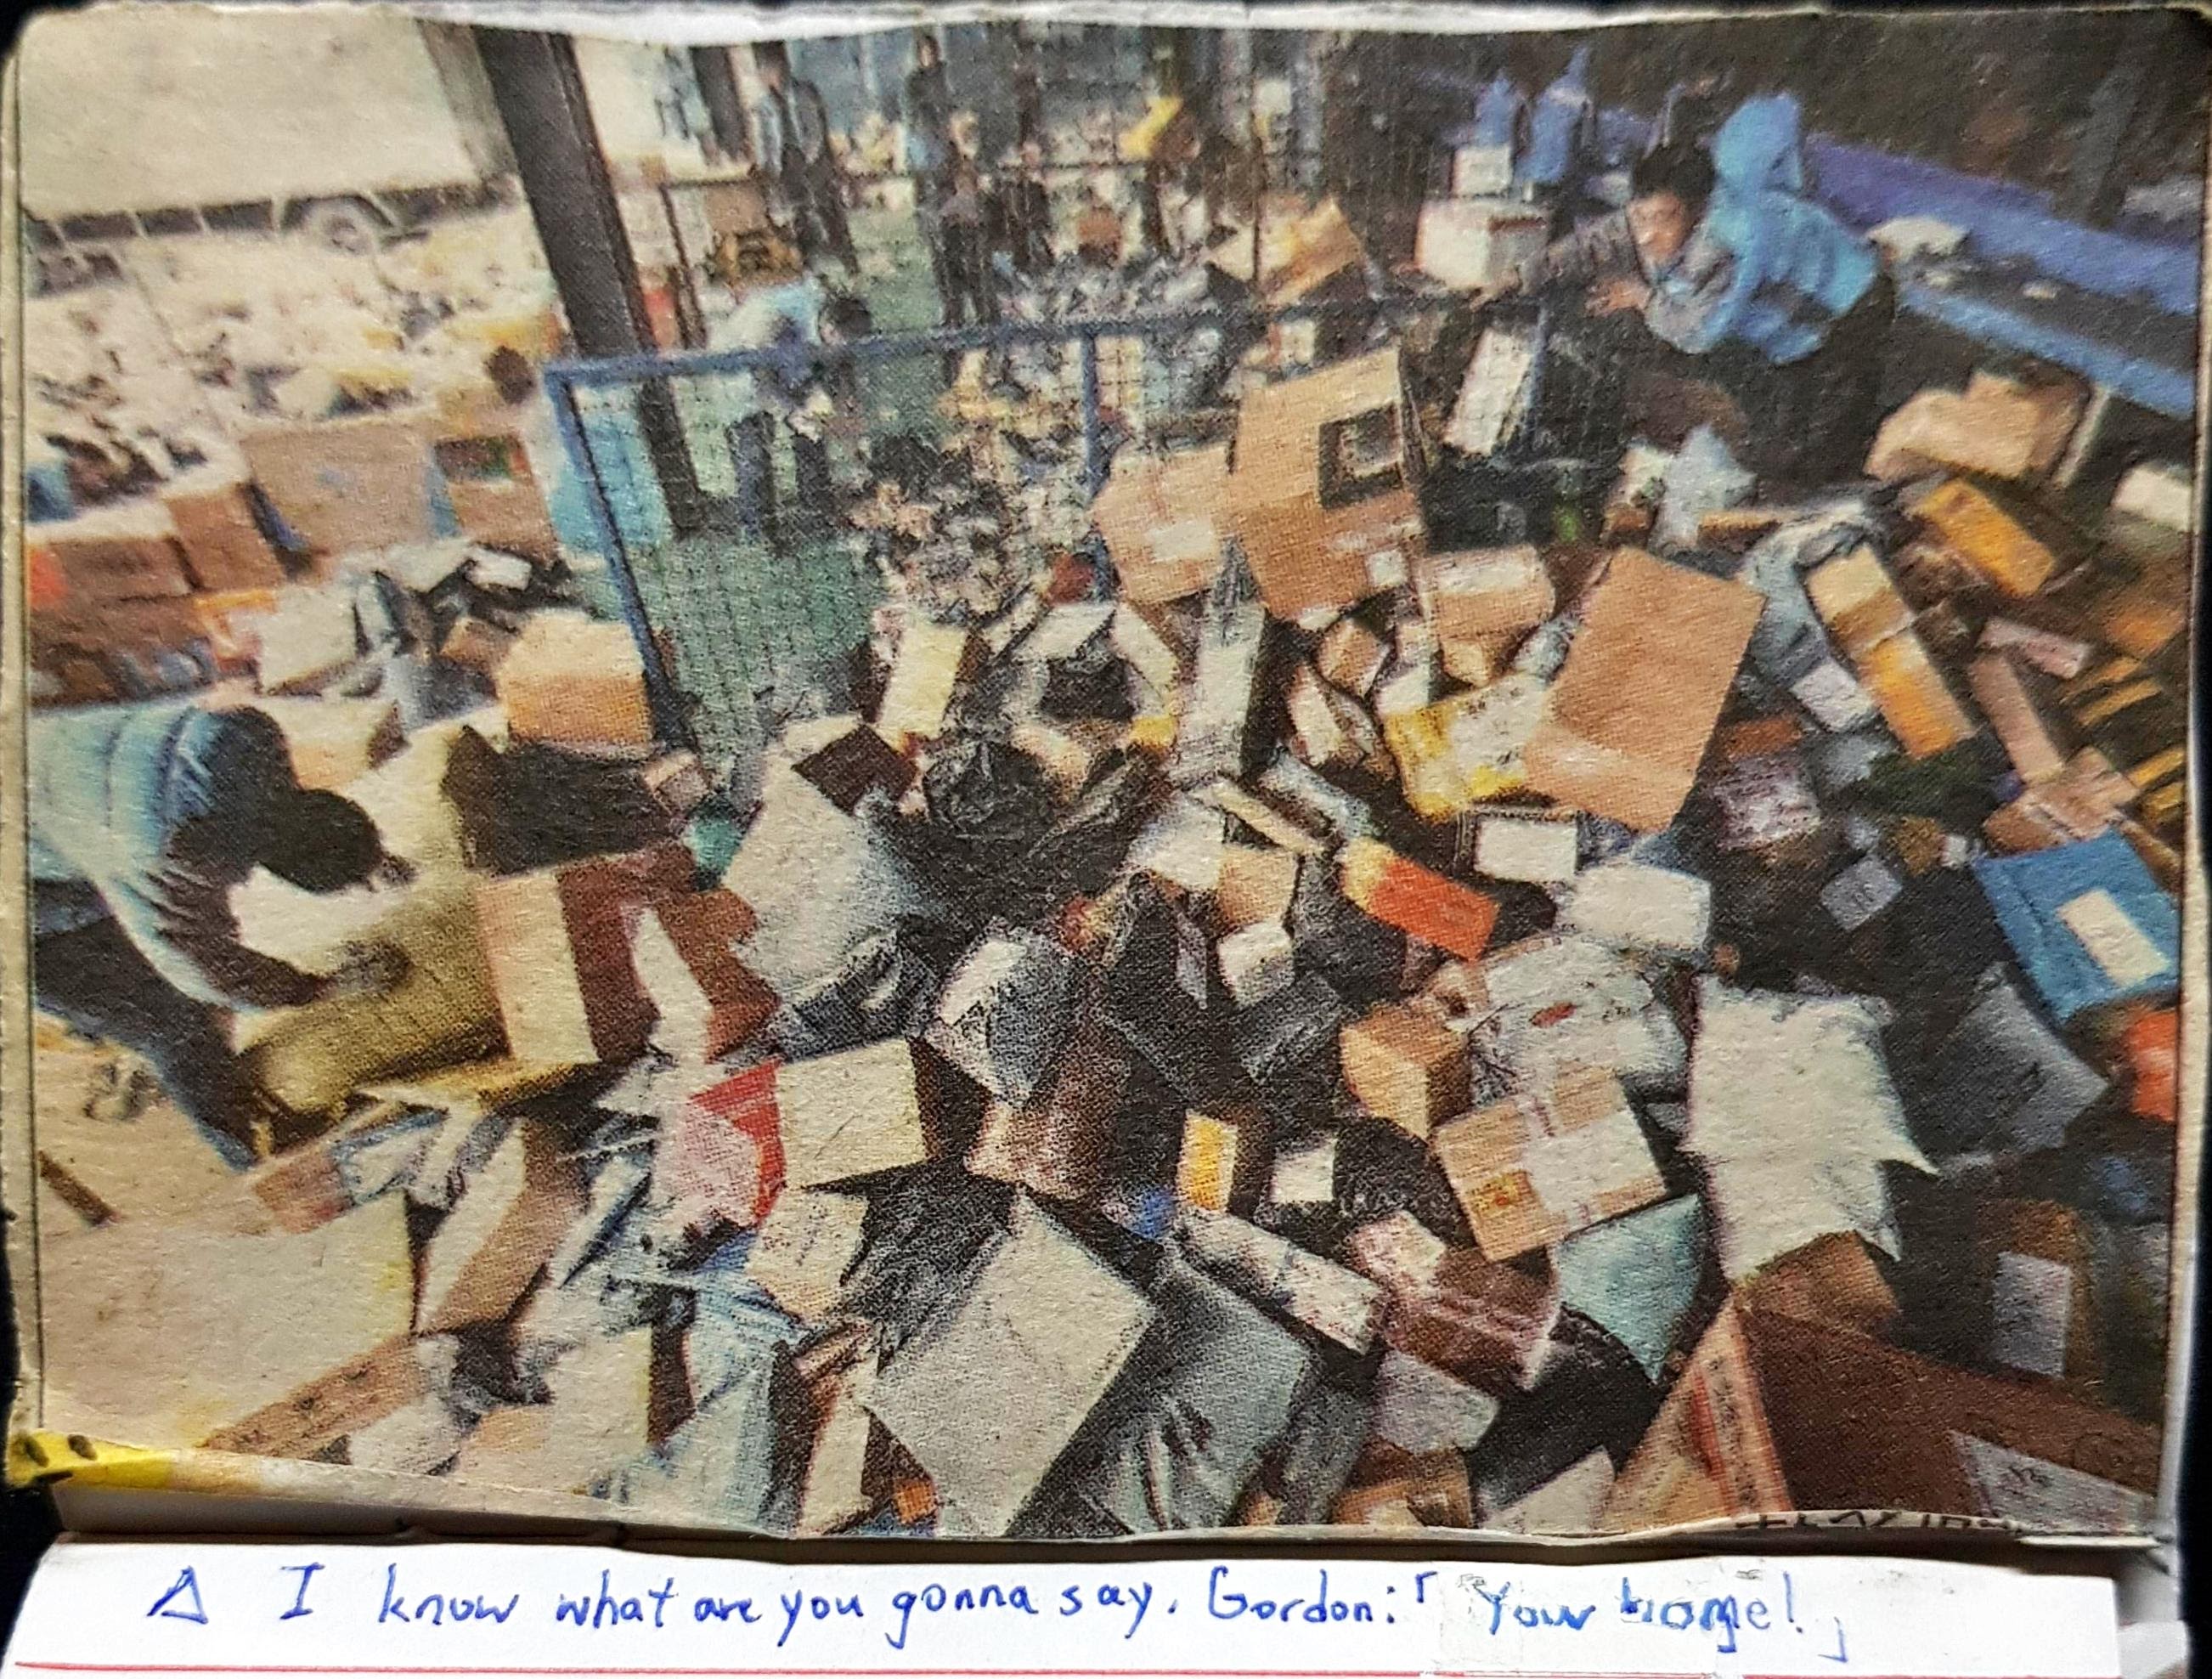 △ I know what are you gonna say. Gordon:「 Your home!」